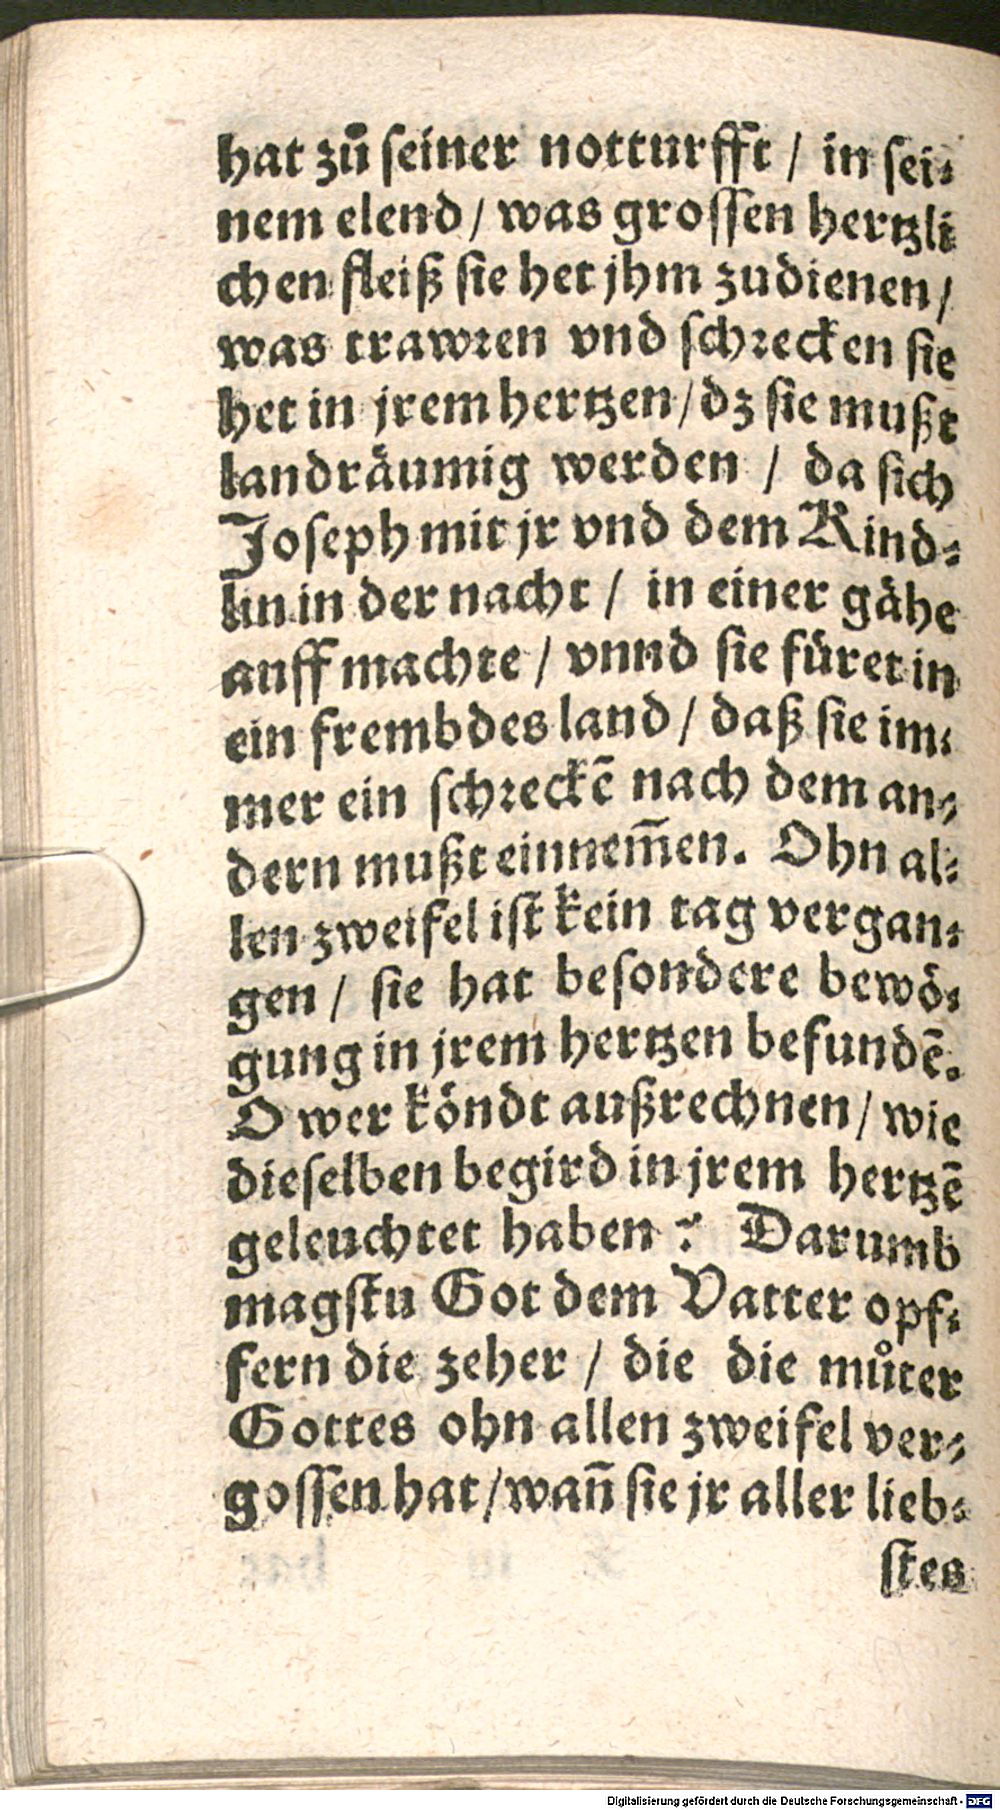 hat zů seiner notturfft / in sei⸗
nem elend / was grossen hertzli
chen fleiß sie het jhm zudienen /
was trawren vnd schrecken sie
het in jrem hertzen / dz sie mußt
landräumig werden / da sich
Joseph mit jr vnd dem Kind⸗
lin in der nacht / in einer gähe
auff machte / vnnd sie füret in
ein frembdes land / daß sie im⸗
mer ein schreckē nach dem an⸗
dern mußt einnem̄en. Ohn al⸗
len zweifel ist kein tag vergan⸗
gen / sie hat besondere bewö⸗
gung in jrem hertzen befundē.
O wer köndt außrechnen / wie
dieselben begird in jrem hertzē
geleuchtet haben? Darumb
magstu Got dem Vatter opf⸗
fern die zeher / die die můter
Gottes ohn allen zweifel ver⸗
gossen hat / wan̄ sie jr aller lieb⸗
stes
Digitalisierung gefördert durch die Deutsche Forschungsgemeinschaft - DFG